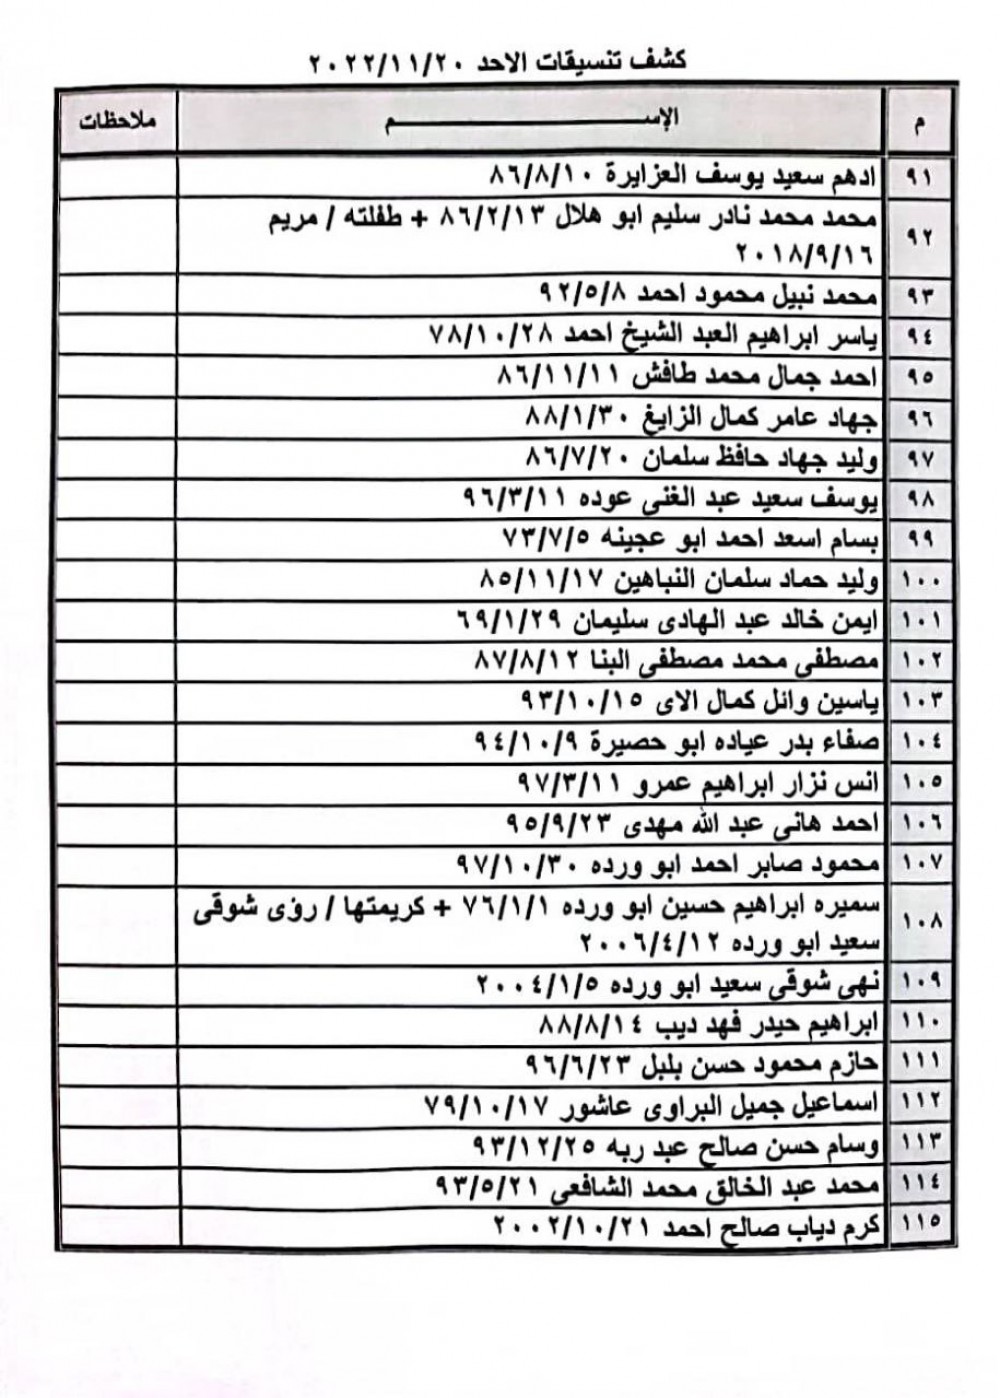 كشف تنسيقات الاحد ٢٠٢٢/١١/٢٠
م الإســـــــــــــــــم ملاحظات
٩١ ادهم سعيد يوسف العزايرة ٨٦/٨/١٠
٩٢ محمد محمد نادر سليم ابو هلال ٨٦/٢/١٣ + طفلته / مريم
٢٠١٨/٩/١٦
٩٣ محمد نبيل محمود احمد ٩٢/٥/٨
٩٤ ياسر ابراهيم العبد الشيخ احمد ٧٨/١٠/٢٨
٩٥ احمد جمال محمد طافش ٨٦/١١/١١
٩٦ جهاد عامر كمال الزايغ ٨٨/١/٣٠
٩٧ وليد جهاد حافظ سلمان ٨٦/٧/٢٠
٩٨ يوسف سعيد عبد الغنى عوده ٩٦/٣/١١
٩٩ بسام اسعد احمد ابو عجينه ٧٣/٧/٥
١٠٠ وليد حماد سلمان النباهين ٨٥/١١/١٧
١٠١ ايمن خالد عبد الهادى سليمان ٦٩/١/٢٩
١٠٢ مصطفى محمد مصطفى البنا ٨٧/٨/١٢
١٠٣ ياسين وائل كمال الاى ٩٣/١٠/١٥
١٠٤ صفاء بدر عياده ابو حصيرة ٩٤/١٠/٩
١٠٥ انس نزار ابراهيم عمرو ٩٧/٣/١١
١٠٦ احمد هانى عبد الله مهدى ٩٥/٩/٢٣
١٠٧ محمود صابر احمد ابو ورده ٩٧/١٠/٣٠
١٠٨ سميره ابراهيم حسين ابو ورده ٧٦/١/١ + كريمتها / رؤى شوقى
سعيد ابو ورده ٢٠٠٦/٤/١٢
١٠٩ نهى شوقى سعيد ابو ورده ٢٠٠٤/١/٥
١١٠ ابراهيم حيدر فهد ديب ٨٨/٨/١٤
١١١ حازم محمود حسن بلبل ٩٦/٦/٢٣
١١٢ اسماعيل جميل البراوى عاشور ٧٩/١٠/١٧
١١٣ وسام حسن صالح عبد ربه ٩٣/١٢/٢٥
١١٤ محمد عبد الخالق محمد الشافعي ٩٣/٥/٢١
١١٥ كرم دياب صالح احمد ٢٠٠٢/١٠/٢١